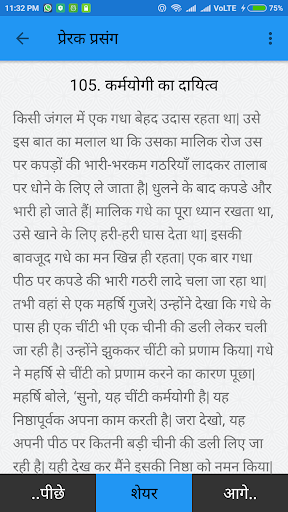 11:32 PM ... VoLTE VoLTE 75%
प्रेरक प्रसंग
105. कर्मयोगी का दायित्व
किसी जंगल में एक गधा बेहद उदास रहता था| उसे
इस बात का मलाल था कि उसका मालिक रोज उस
पर कपड़ों की भारी-भरकम गठरियाँ लादकर तालाब
पर धोने के लिए ले जाता है| धुलने के बाद कपडे और
भारी हो जाते हैं| मालिक गधे का पूरा ध्यान रखता था,
उसे खाने के लिए हरी-हरी घास देता था| इसकी
बावजूद गधे का मन खिन्न ही रहता| एक बार गधा
पीठ पर कपडे की भारी गठरी लादे चला जा रहा था|
तभी वहां से एक महर्षि गुजरे| उन्होंने देखा कि गधे के
पास ही एक चींटी भी एक चीनी की डली लेकर चली
जा रही है| उन्होंने झुककर चींटी को प्रणाम किया| गधे
ने महर्षि से चींटी को प्रणाम करने का कारण पूछा|
महर्षि बोले, 'सुनो, यह चींटी कर्मयोगी है| यह
निष्ठापूर्वक अपना काम करती है| जरा देखो, यह
अपनी पीठ पर कितनी बड़ी चीनी की डली लिए जा
रही है| यही देख कर मैंने इसकी निष्ठा को नमन किया|
..पीछे
शेयर
आगे..